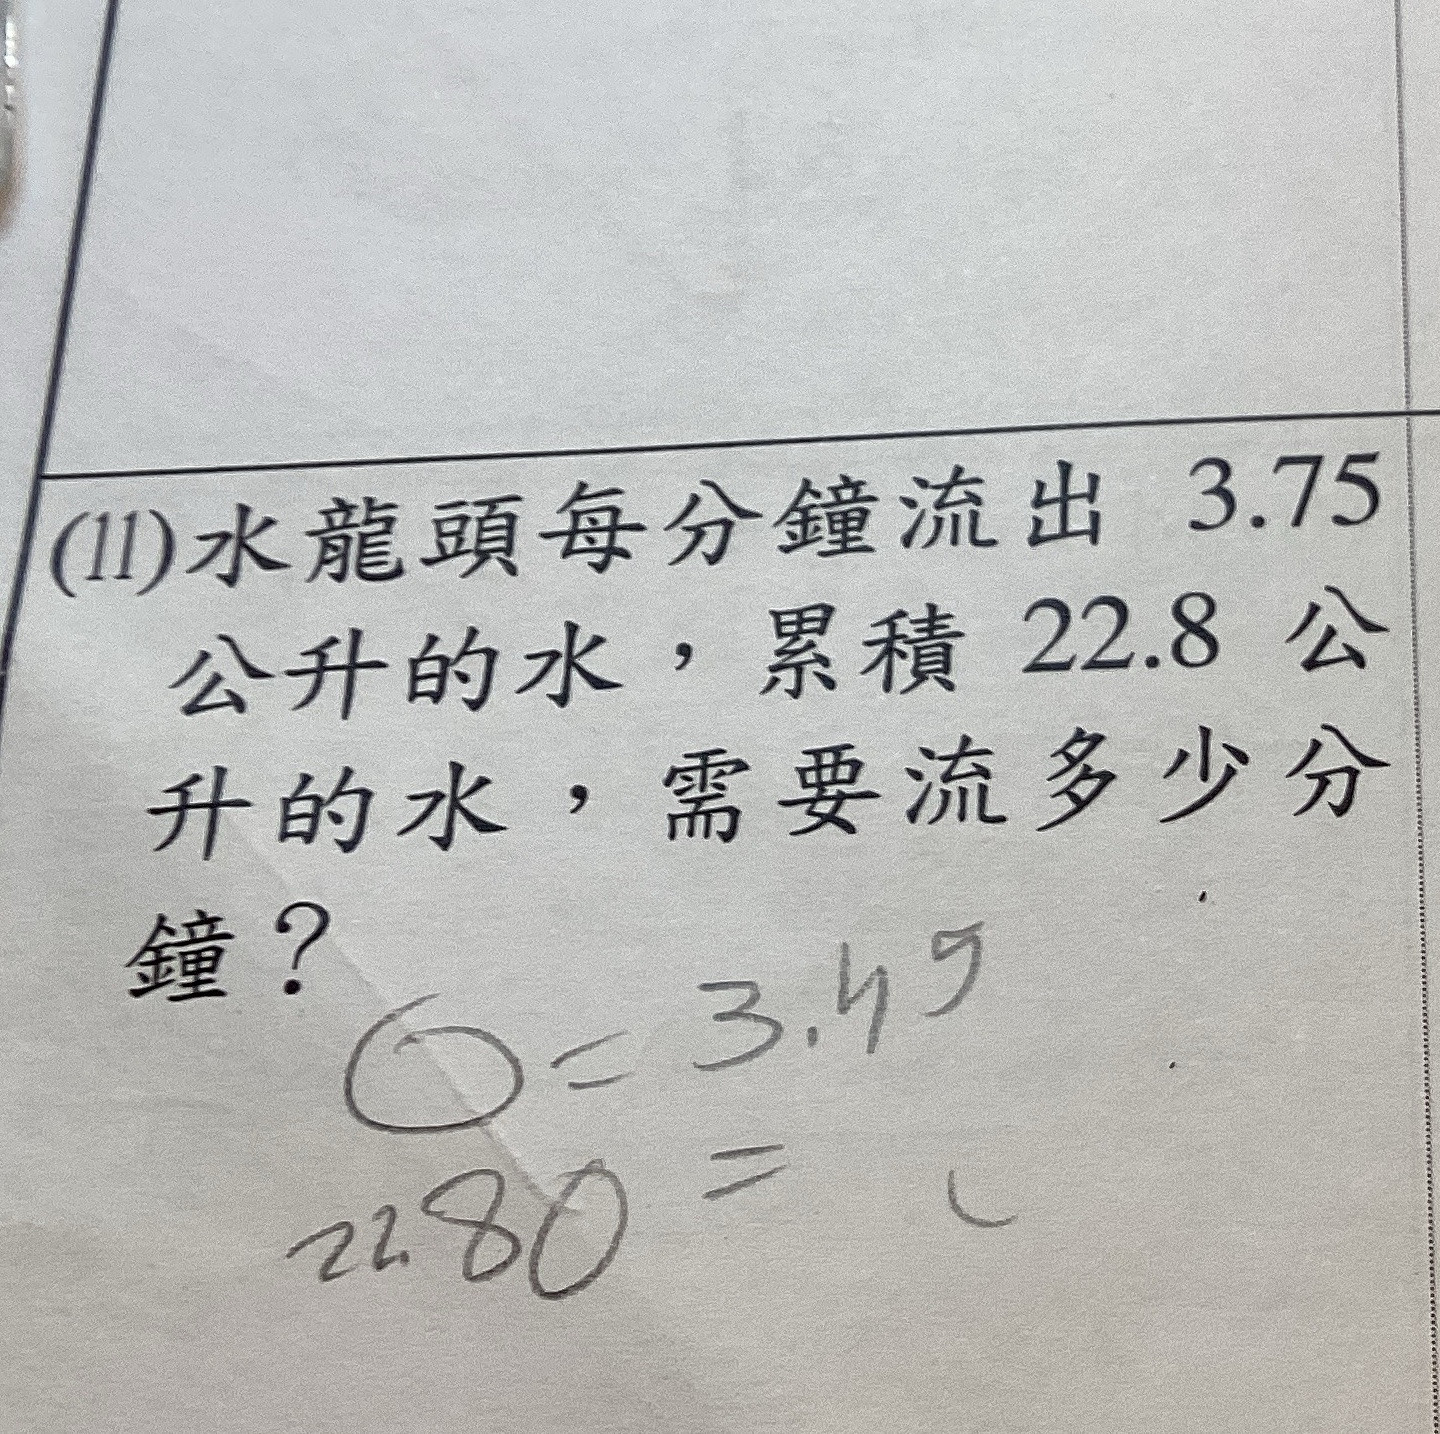 (11)水龍頭每分鐘流出 3.75
公升的水,累積 22.8 公
升的水,需要流多少分
鐘?
= 3.75
22.80 =